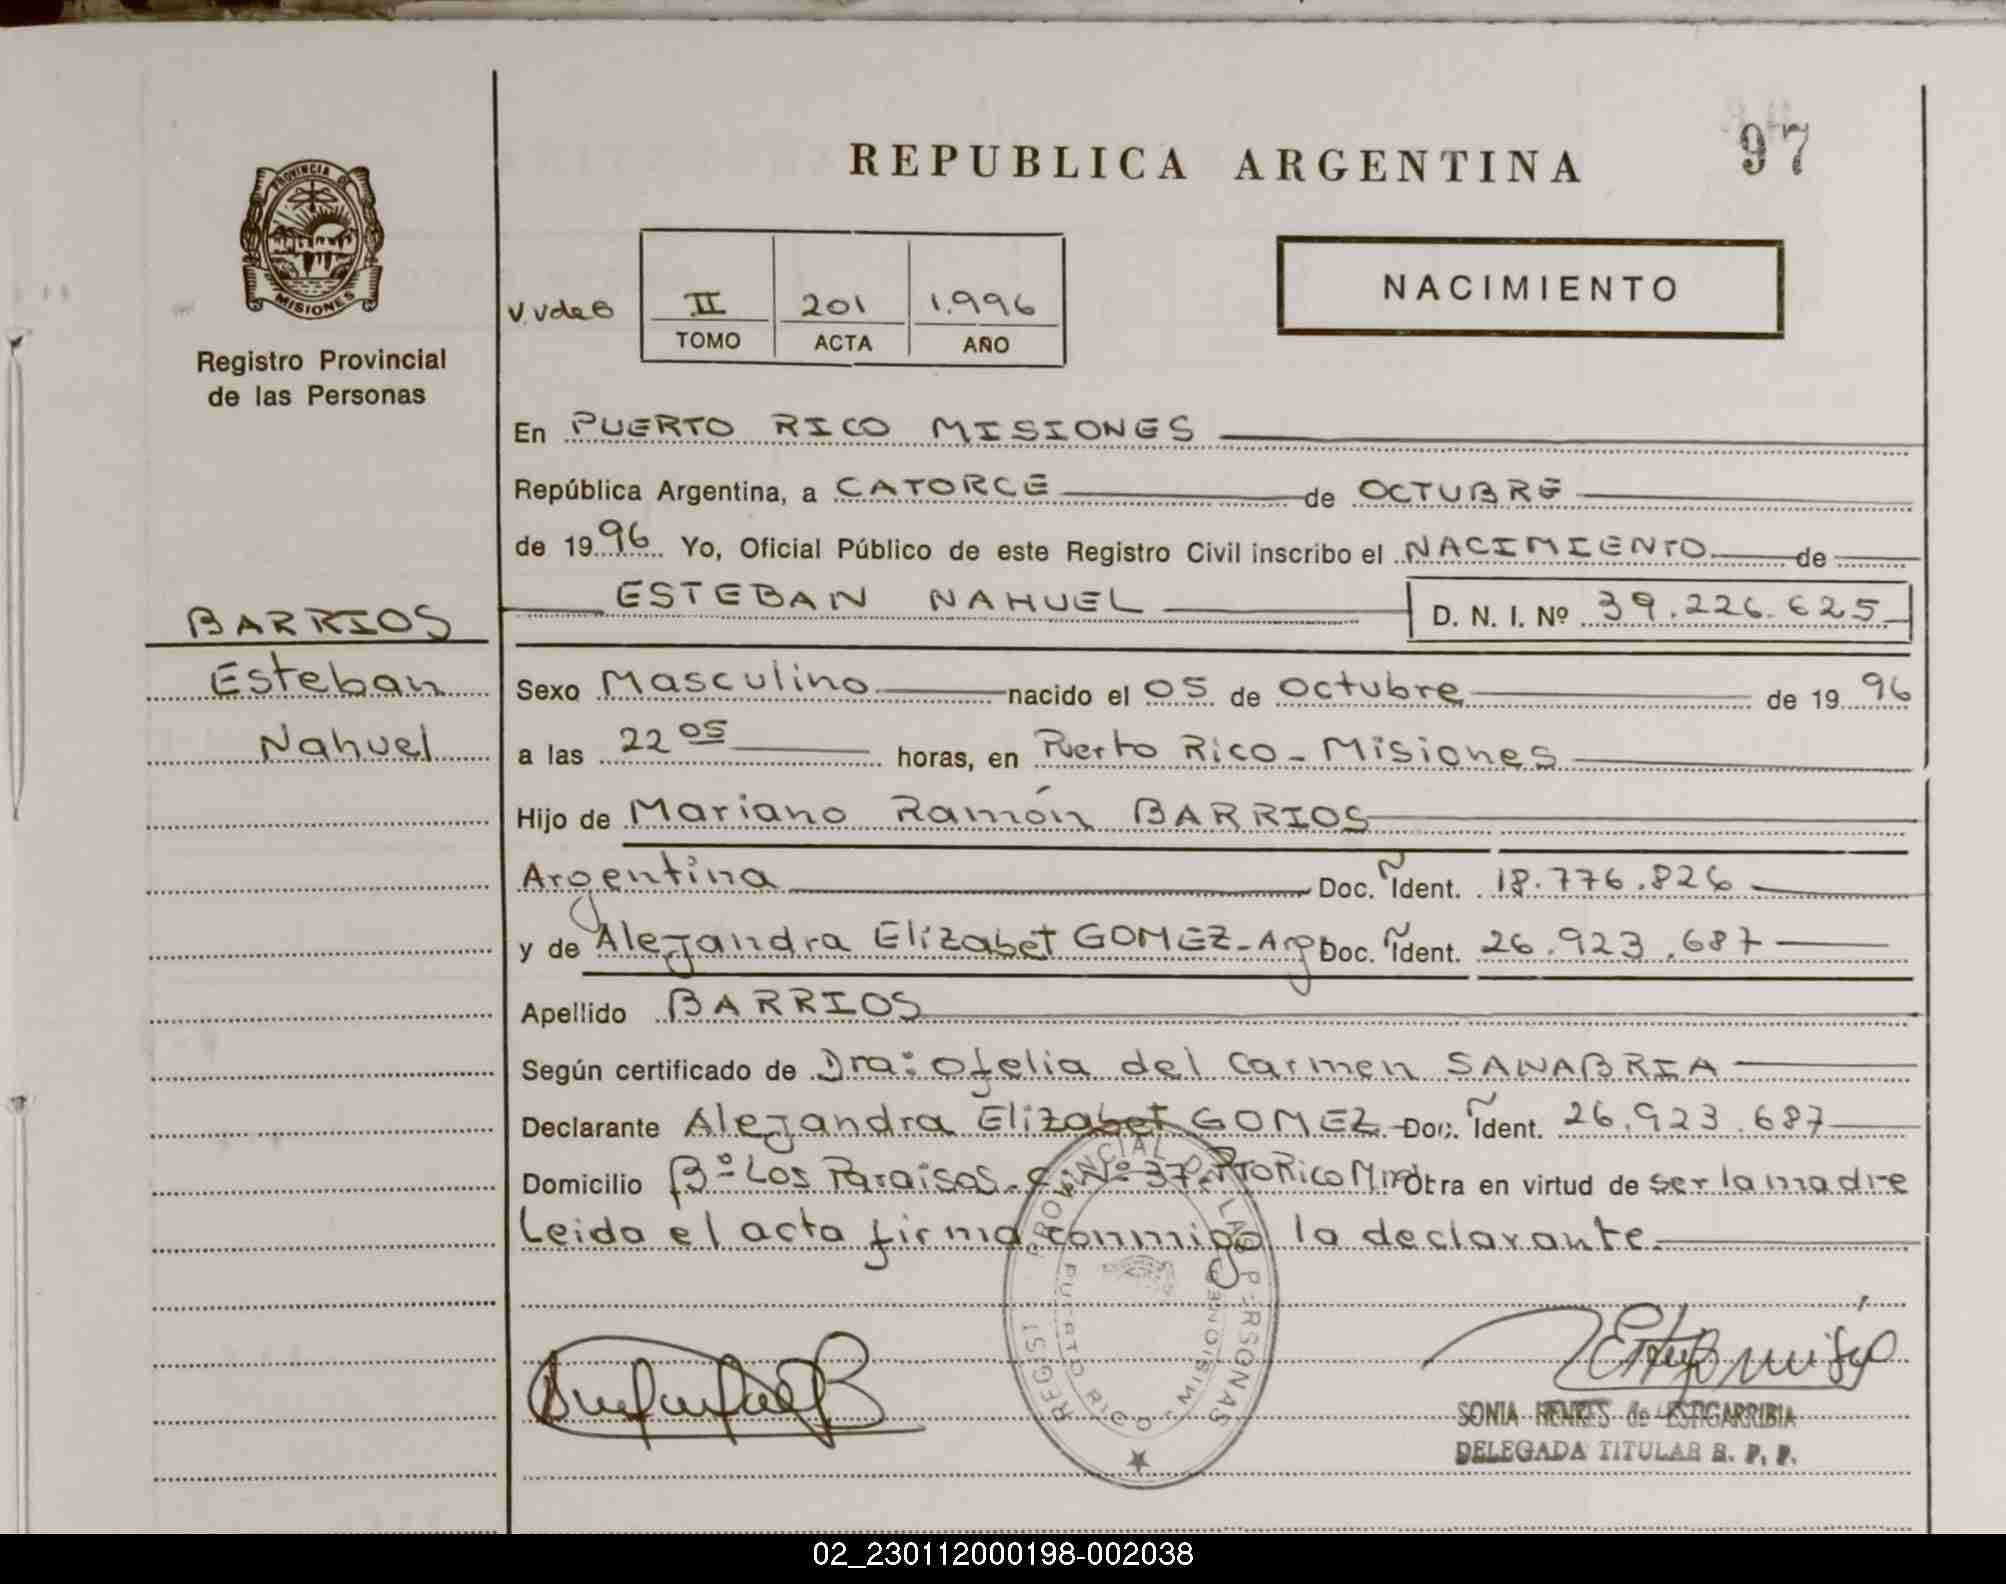 REPUBLICA ARGENTINA
97
PROVINCIA DE
MISIONES
Registro Provincial
de las Personas
II 201 1.996
TOMO ACTA AÑO
NACIMIENTO
En PUERTO RICO MISIONES
República Argentina, a CATORCE de OCTUBRE
de 1996 Yo, Oficial Público de este Registro Civil inscribo el NACIMIENTO de
ESTEBAN NAHUEL D. N. I. Nº 39.226.625
BARRIOS
Esteban
Nahuel
Sexo Masculino nacido el 05 de Octubre de 1996
a las 22 05 horas, en Puerto Rico - Misiones
Hijo de Mariano Ramón BARRIOS
Argentina Doc. Ñ Ident. 18.776.826
y de Alejandra Elizabet GOMEZ - Arg Doc. Ñ Ident. 26.923.687
Apellido BARRIOS
Según certificado de Dra: Ofelia del Carmen SANABRIA
Declarante Alejandra Elizabet GOMEZ - Doc. Ñ Ident. 26.923.687
Domicilio Bº Los Paraisos - C. Nº 37 - Pto Rico Mnes Obra en virtud de ser la madre
Leida el acta firma conmigo la declarante.
REGIST PROVINCIAL DE LAS PERSONAS
PUERTO RICO MISIONES
SONIA HENRES de ESTIGARRIBIA
DELEGADA TITULAR R. P. P.
02_230112000198-002038